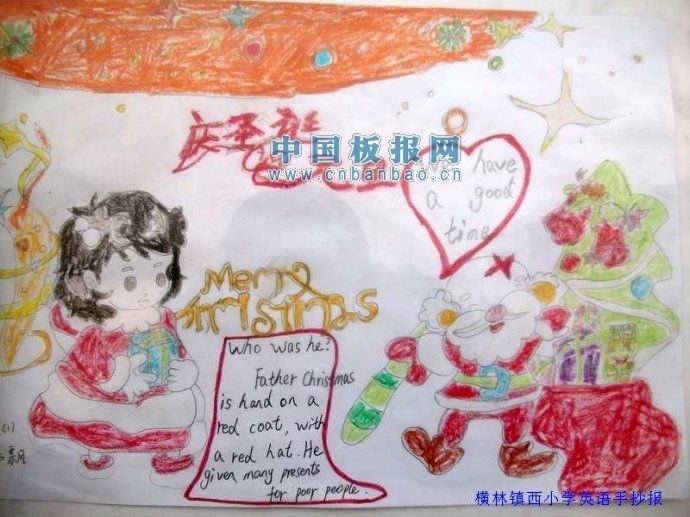 庆圣诞
中国板报网
www.cnbanbao.cn
have
a good
time
Merry
Christmas
Who was he?
Father Christmas
is hand on a
red coat, with
a red hat. He
given many presents
for poor people.
(1)
横林镇西小学英语手抄报